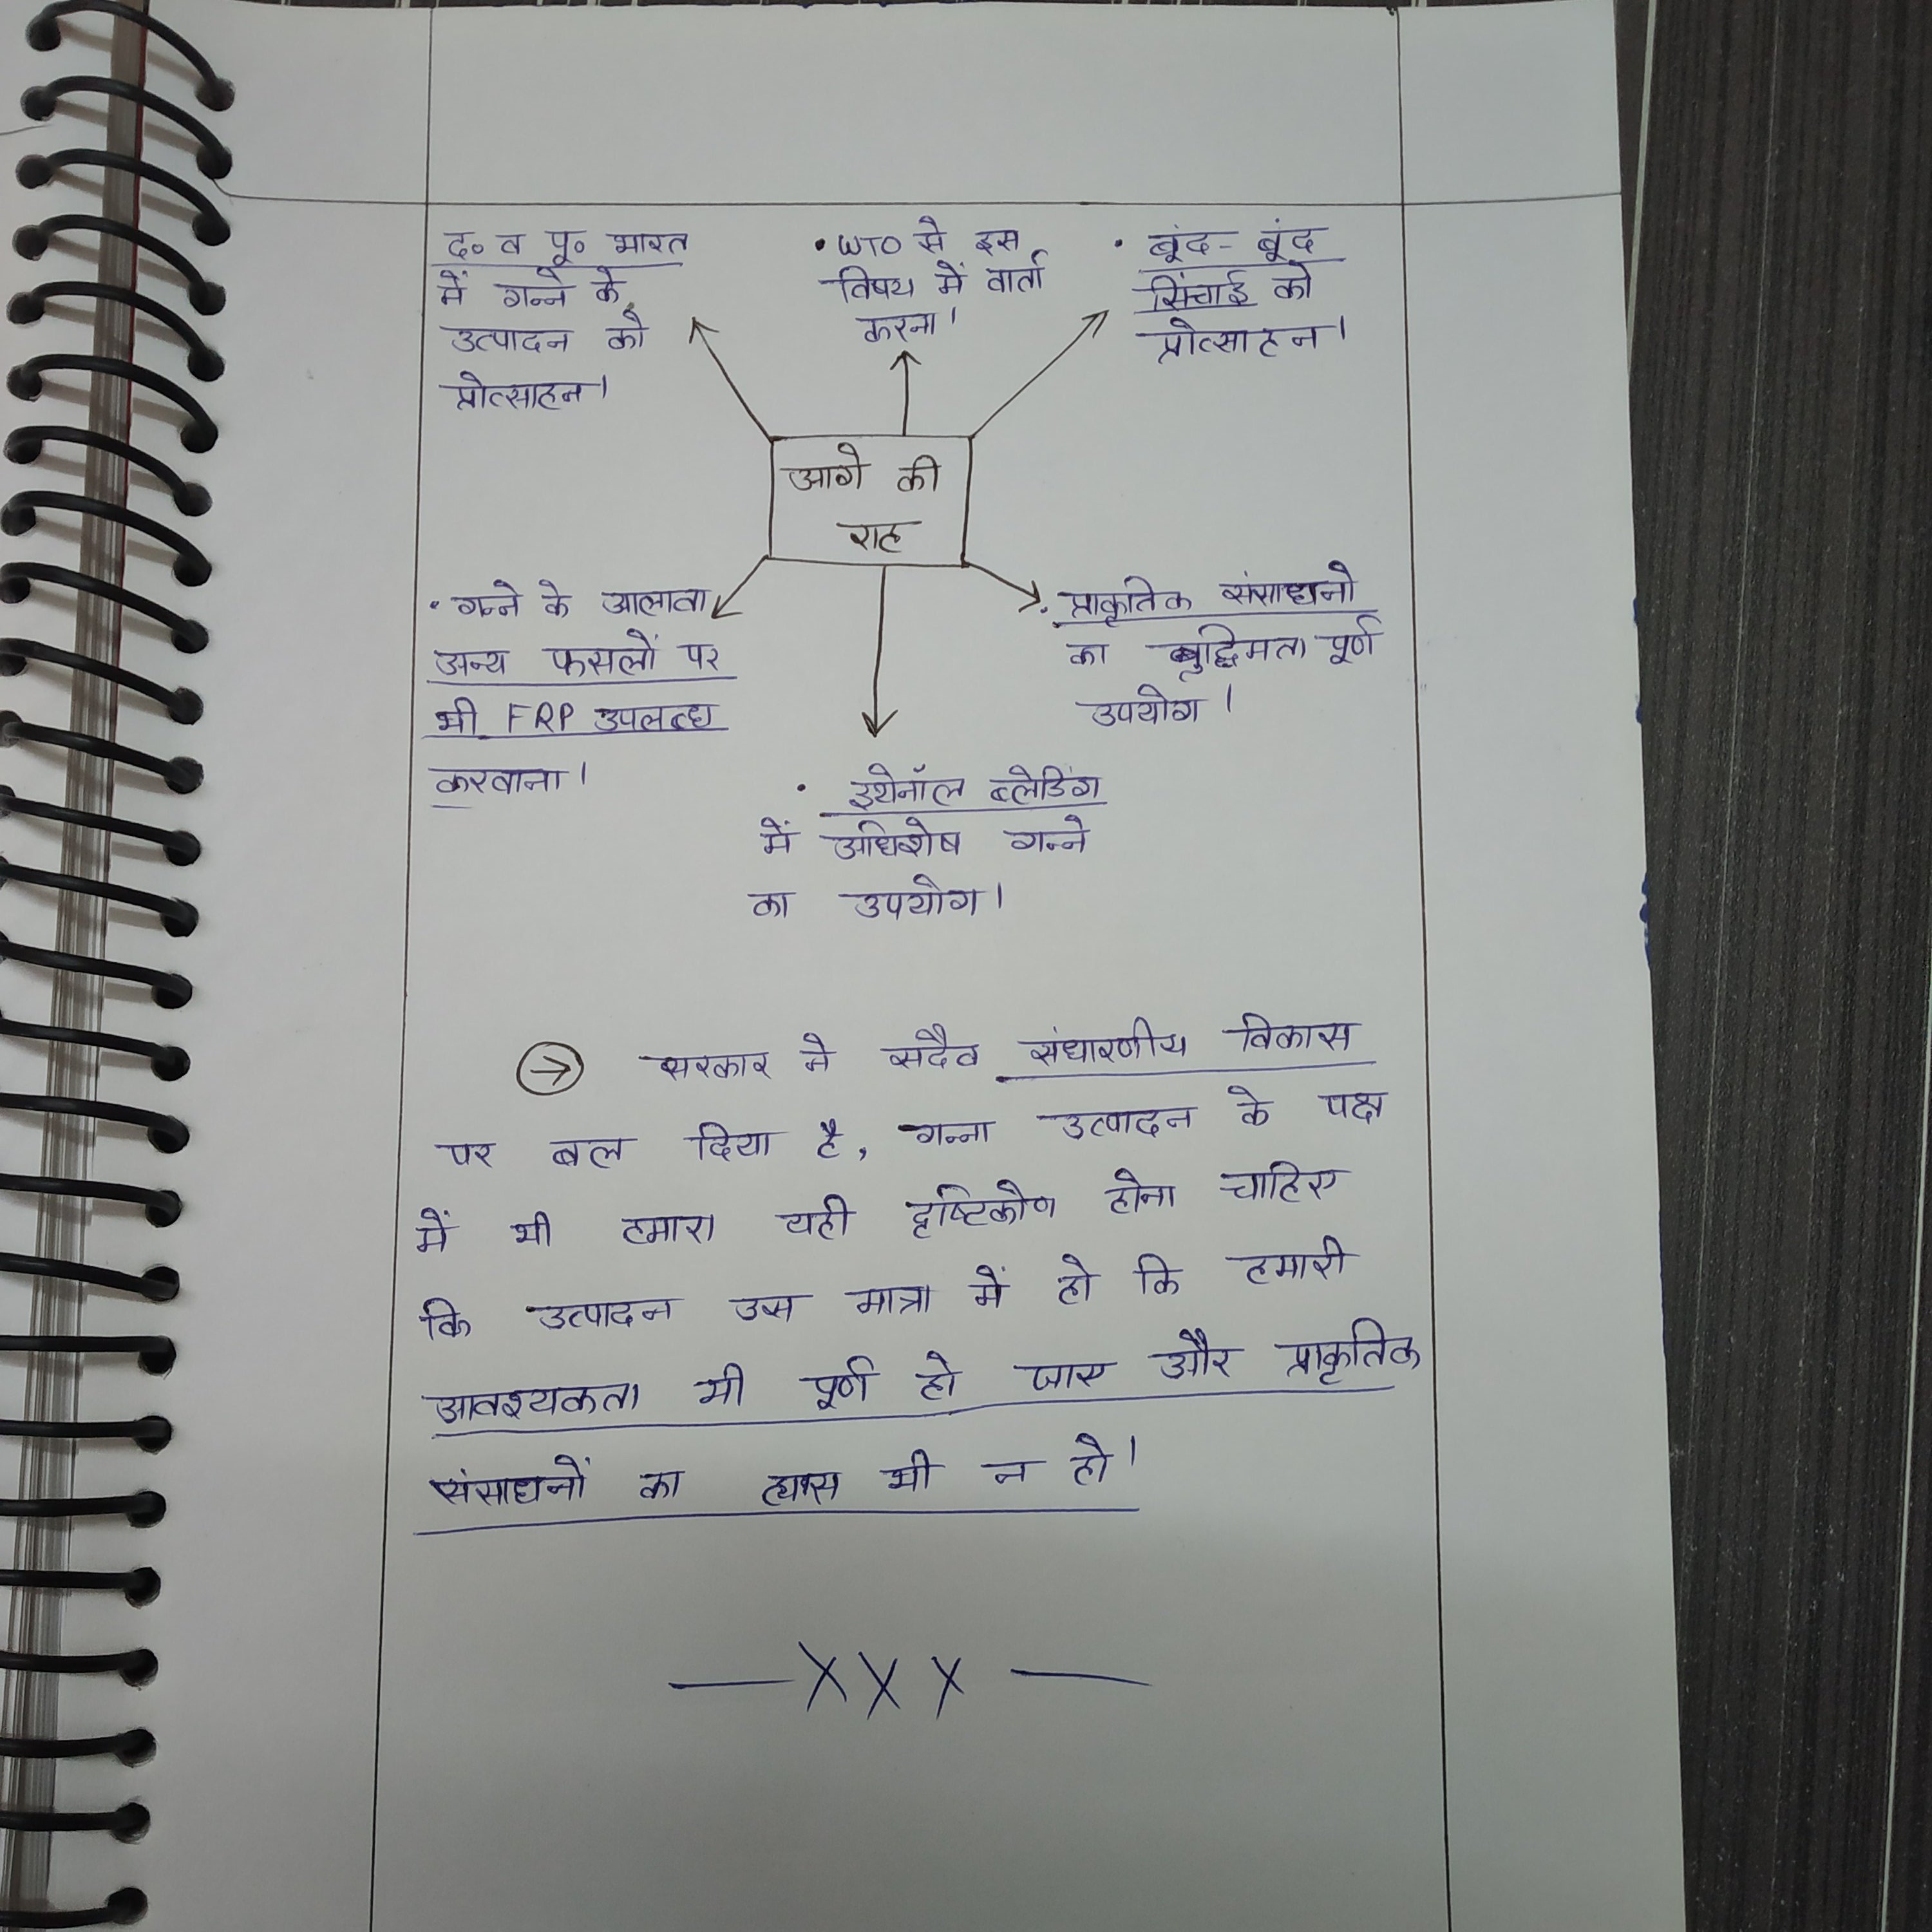 द० व पू० भारत
में गन्ने के
उत्पादन को
प्रोत्साहन।
• WTO से इस
विषय में वार्ता
करना।
• बूंद-बूंद
सिंचाई को
प्रोत्साहन।
आगे की
राह
• गन्ने के आलावा
अन्य फसलों पर
भी FRP उपलब्ध
करवाना।
• प्राकृतिक संसाधनो
का बुद्धिमता पूर्ण
उपयोग।
• इथेनॉल ब्लेडिंग
में अधिशेष गन्ने
का उपयोग।
→ सरकार ने सदैव संधारणीय विकास
पर बल दिया है, गन्ना उत्पादन के पक्ष
में भी हमारा यही दृष्टिकोण होना चाहिए
कि उत्पादन उस मात्रा में हो कि हमारी
आवश्यकता भी पूर्ण हो जाए और प्राकृतिक
संसाधनों का ह्यस भी न हो।
—XXX—